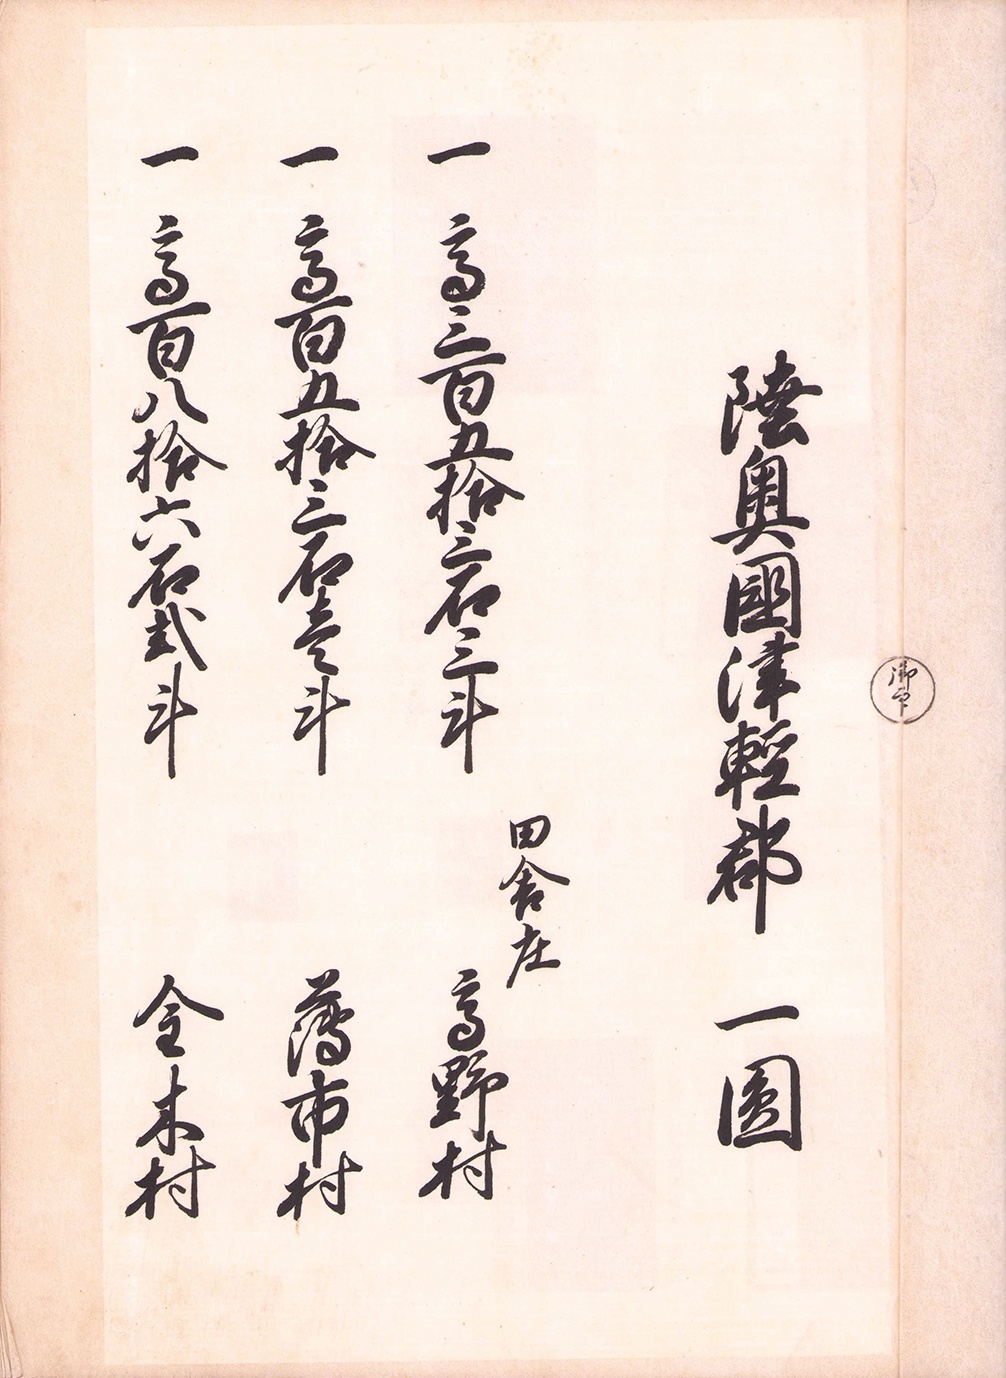 御印
陸奥國津輕郡 一圓
田舎庄
一 高三百五拾三石三斗 高野村
一 高百五拾三石壱斗 薄市村
一 高百八拾六石弐斗 金木村